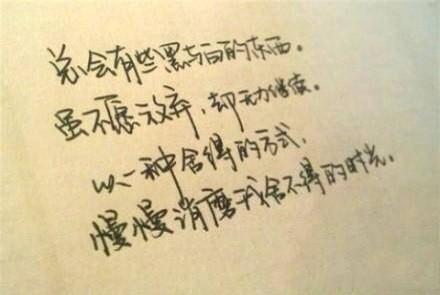 总会有些黑与白的东西。
虽不愿放弃,却无力继续。
以一种舍得的方式,
慢慢消磨我舍不得的时光。